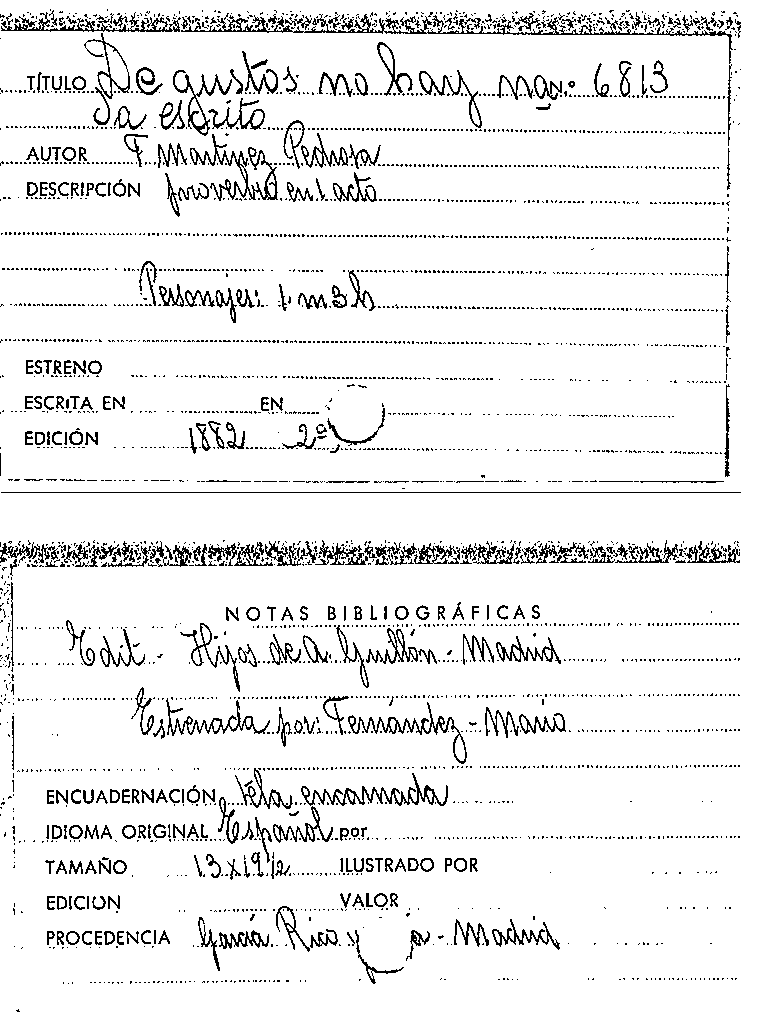 TÍTULO De gustos no hay na- 6813
da escrito
AUTOR F Martinez Pedrosa
DESCRIPCIÓN proverbio en 1 acto
Personajes: 1 m 3 h
ESTRENO
ESCRITA EN EN
EDICIÓN 1882 2ª
NOTAS BIBLIOGRÁFICAS
Edit - Hijos de A. Gullón - Madrid
Estrenada por: Fernández - Mario
ENCUADERNACIÓN tela encarnada
IDIOMA ORIGINAL Español por
TAMAÑO 13 x 19 1/2 ILUSTRADO POR
EDICION VALOR
PROCEDENCIA García Rico y - Madrid